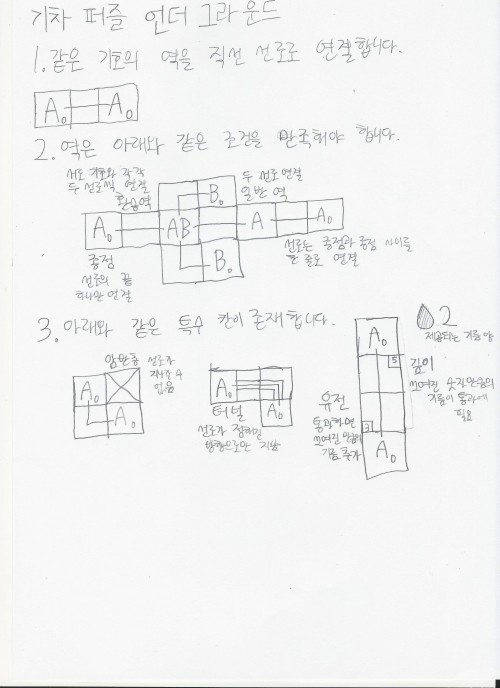 기차 퍼즐 언더 그라운드
1. 같은 기호의 역을 직선 선로로 연결합니다.
A₀ A₀
2. 역은 아래와 같은 조건을 만족해야 합니다.
서로 기호와 각각
두 선로씩 연결
환승역
B₀
두 선로 연결
일반 역
A₀ AB A A₀
종점
선로의 끝
하나만 연결
B₀
선로는 종점과 종점 사이를
한 줄로 연결
3. 아래와 같은 특수 칸이 존재합니다.
암반층
선로가
지나갈 수
없음
A₀
A₀
A₀
A₀
터널
선로가 정해진
방향으로만 지남
A₀
5
3
A₀
2
제공되는 기름 양
깊이
쓰여진 숫자만큼의
기름이 통과에
필요
유전
통과하면
쓰여진 만큼
기름 추가